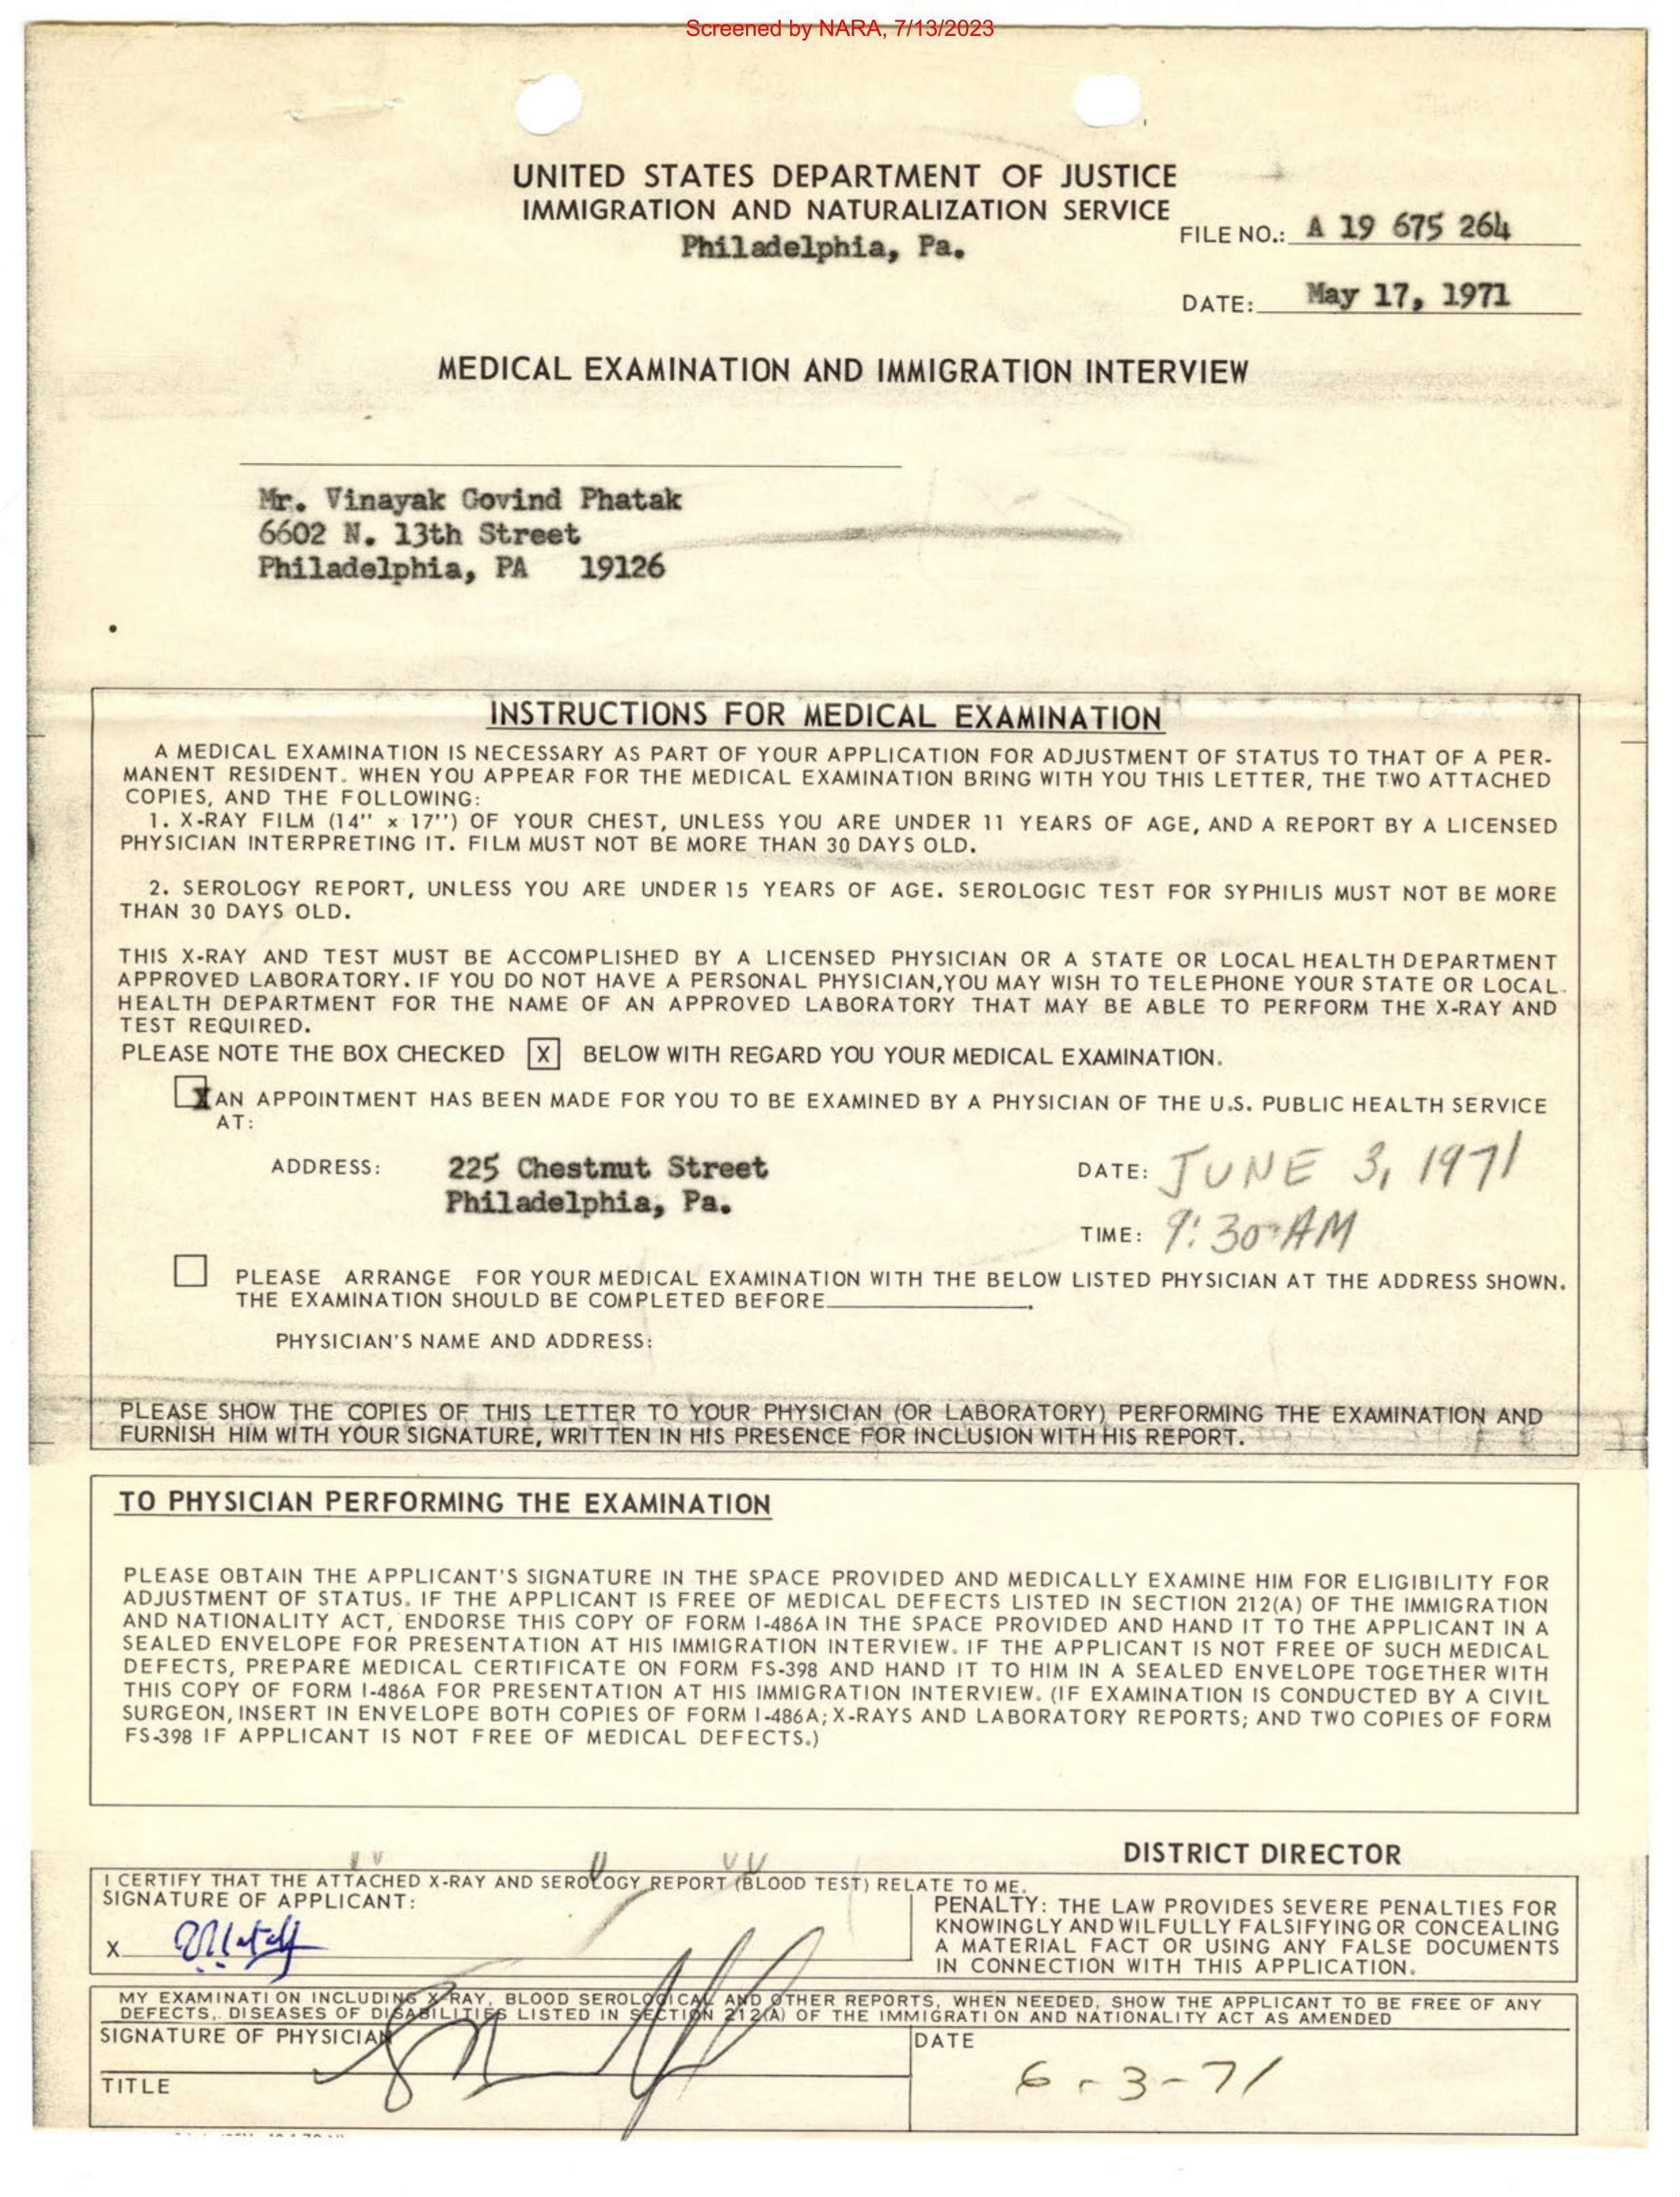 Screened by NARA, 7/13/2023
UNITED STATES DEPARTMENT OF JUSTICE
IMMIGRATION AND NATURALIZATION SERVICE
Philadelphia, Pa.
FILE NO.: A 19 675 264
DATE: May 17, 1971
MEDICAL EXAMINATION AND IMMIGRATION INTERVIEW
Mr. Vinayak Govind Phatak
6602 N. 13th Street
Philadelphia, PA 19126
INSTRUCTIONS FOR MEDICAL EXAMINATION
A MEDICAL EXAMINATION IS NECESSARY AS PART OF YOUR APPLICATION FOR ADJUSTMENT OF STATUS TO THAT OF A PER-
MANENT RESIDENT. WHEN YOU APPEAR FOR THE MEDICAL EXAMINATION BRING WITH YOU THIS LETTER, THE TWO ATTACHED
COPIES, AND THE FOLLOWING:
1. X-RAY FILM (14'' x 17'') OF YOUR CHEST, UNLESS YOU ARE UNDER 11 YEARS OF AGE, AND A REPORT BY A LICENSED
PHYSICIAN INTERPRETING IT. FILM MUST NOT BE MORE THAN 30 DAYS OLD.
2. SEROLOGY REPORT, UNLESS YOU ARE UNDER 15 YEARS OF AGE. SEROLOGIC TEST FOR SYPHILIS MUST NOT BE MORE
THAN 30 DAYS OLD.
THIS X-RAY AND TEST MUST BE ACCOMPLISHED BY A LICENSED PHYSICIAN OR A STATE OR LOCAL HEALTH DEPARTMENT
APPROVED LABORATORY. IF YOU DO NOT HAVE A PERSONAL PHYSICIAN, YOU MAY WISH TO TELEPHONE YOUR STATE OR LOCAL
HEALTH DEPARTMENT FOR THE NAME OF AN APPROVED LABORATORY THAT MAY BE ABLE TO PERFORM THE X-RAY AND
TEST REQUIRED.
PLEASE NOTE THE BOX CHECKED X BELOW WITH REGARD YOU YOUR MEDICAL EXAMINATION.
X AN APPOINTMENT HAS BEEN MADE FOR YOU TO BE EXAMINED BY A PHYSICIAN OF THE U.S. PUBLIC HEALTH SERVICE
AT:
ADDRESS: 225 Chestnut Street
Philadelphia, Pa.
DATE: JUNE 3, 1971
TIME: 9:30 AM
PLEASE ARRANGE FOR YOUR MEDICAL EXAMINATION WITH THE BELOW LISTED PHYSICIAN AT THE ADDRESS SHOWN.
THE EXAMINATION SHOULD BE COMPLETED BEFORE ______.
PHYSICIAN'S NAME AND ADDRESS:
PLEASE SHOW THE COPIES OF THIS LETTER TO YOUR PHYSICIAN (OR LABORATORY) PERFORMING THE EXAMINATION AND
FURNISH HIM WITH YOUR SIGNATURE, WRITTEN IN HIS PRESENCE FOR INCLUSION WITH HIS REPORT.
TO PHYSICIAN PERFORMING THE EXAMINATION
PLEASE OBTAIN THE APPLICANT'S SIGNATURE IN THE SPACE PROVIDED AND MEDICALLY EXAMINE HIM FOR ELIGIBILITY FOR
ADJUSTMENT OF STATUS. IF THE APPLICANT IS FREE OF MEDICAL DEFECTS LISTED IN SECTION 212(A) OF THE IMMIGRATION
AND NATIONALITY ACT, ENDORSE THIS COPY OF FORM I-486A IN THE SPACE PROVIDED AND HAND IT TO THE APPLICANT IN A
SEALED ENVELOPE FOR PRESENTATION AT HIS IMMIGRATION INTERVIEW. IF THE APPLICANT IS NOT FREE OF SUCH MEDICAL
DEFECTS, PREPARE MEDICAL CERTIFICATE ON FORM FS-398 AND HAND IT TO HIM IN A SEALED ENVELOPE TOGETHER WITH
THIS COPY OF FORM I-486A FOR PRESENTATION AT HIS IMMIGRATION INTERVIEW. (IF EXAMINATION IS CONDUCTED BY A CIVIL
SURGEON, INSERT IN ENVELOPE BOTH COPIES OF FORM I-486A; X-RAYS AND LABORATORY REPORTS; AND TWO COPIES OF FORM
FS-398 IF APPLICANT IS NOT FREE OF MEDICAL DEFECTS.)
DISTRICT DIRECTOR
I CERTIFY THAT THE ATTACHED X-RAY AND SEROLOGY REPORT (BLOOD TEST) RELATE TO ME.
SIGNATURE OF APPLICANT:
X
PENALTY: THE LAW PROVIDES SEVERE PENALTIES FOR
KNOWINGLY AND WILFULLY FALSIFYING OR CONCEALING
A MATERIAL FACT OR USING ANY FALSE DOCUMENTS
IN CONNECTION WITH THIS APPLICATION.
MY EXAMINATION INCLUDING X-RAY, BLOOD SEROLOGICAL AND OTHER REPORTS, WHEN NEEDED, SHOW THE APPLICANT TO BE FREE OF ANY
DEFECTS, DISEASES OF DISABILITIES LISTED IN SECTION 212(A) OF THE IMMIGRATION AND NATIONALITY ACT AS AMENDED
SIGNATURE OF PHYSICIAN
DATE
6-3-71
TITLE